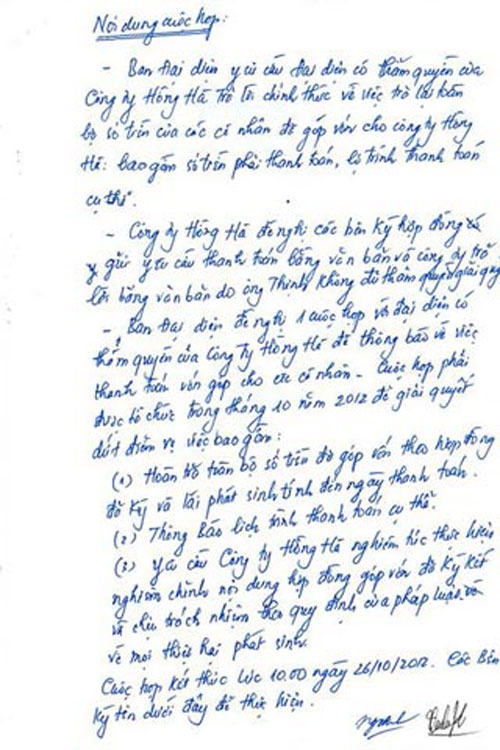 Nội dung cuộc họp:
- Ban Đại diện yêu cầu Đại diện có thẩm quyền của
Công ty Hồng Hà trả lời chính thức về việc trả lại toàn
bộ số tiền của các cá nhân đã góp vốn cho công ty Hồng
Hà: bao gồm số tiền phải thanh toán, lộ trình thanh toán
cụ thể.
- Công ty Hồng Hà đề nghị các bên ký hợp đồng
gửi yêu cầu thanh toán bằng văn bản và công ty trả
lời bằng văn bản do ông Thịnh không đủ thẩm quyền giải quy
- Ban Đại diện đề nghị 1 cuộc họp với đại diện có
thẩm quyền của Công ty Hồng Hà để thông báo về việc
thanh toán vốn góp cho các cá nhân - Cuộc họp phải
được tổ chức trong tháng 10 năm 2012 để giải quyết
dứt điểm vụ việc bao gồm:
(1) Hoàn trả toàn bộ số tiền đã góp vốn theo hợp đồng
đã ký và lãi phát sinh tính đến ngày thanh toán.
(2) Thông báo lịch trình thanh toán cụ thể.
(3) Yêu cầu Công ty Hồng Hà nghiêm túc thực hiện
nghiêm chỉnh nội dung hợp đồng góp vốn đã ký kết
và chịu trách nhiệm theo quy định của pháp luật và
về mọi thiệt hại phát sinh.
Cuộc họp kết thúc lúc 10.00 ngày 26/10/2012. Các Bên
ký tên dưới đây để thực hiện.